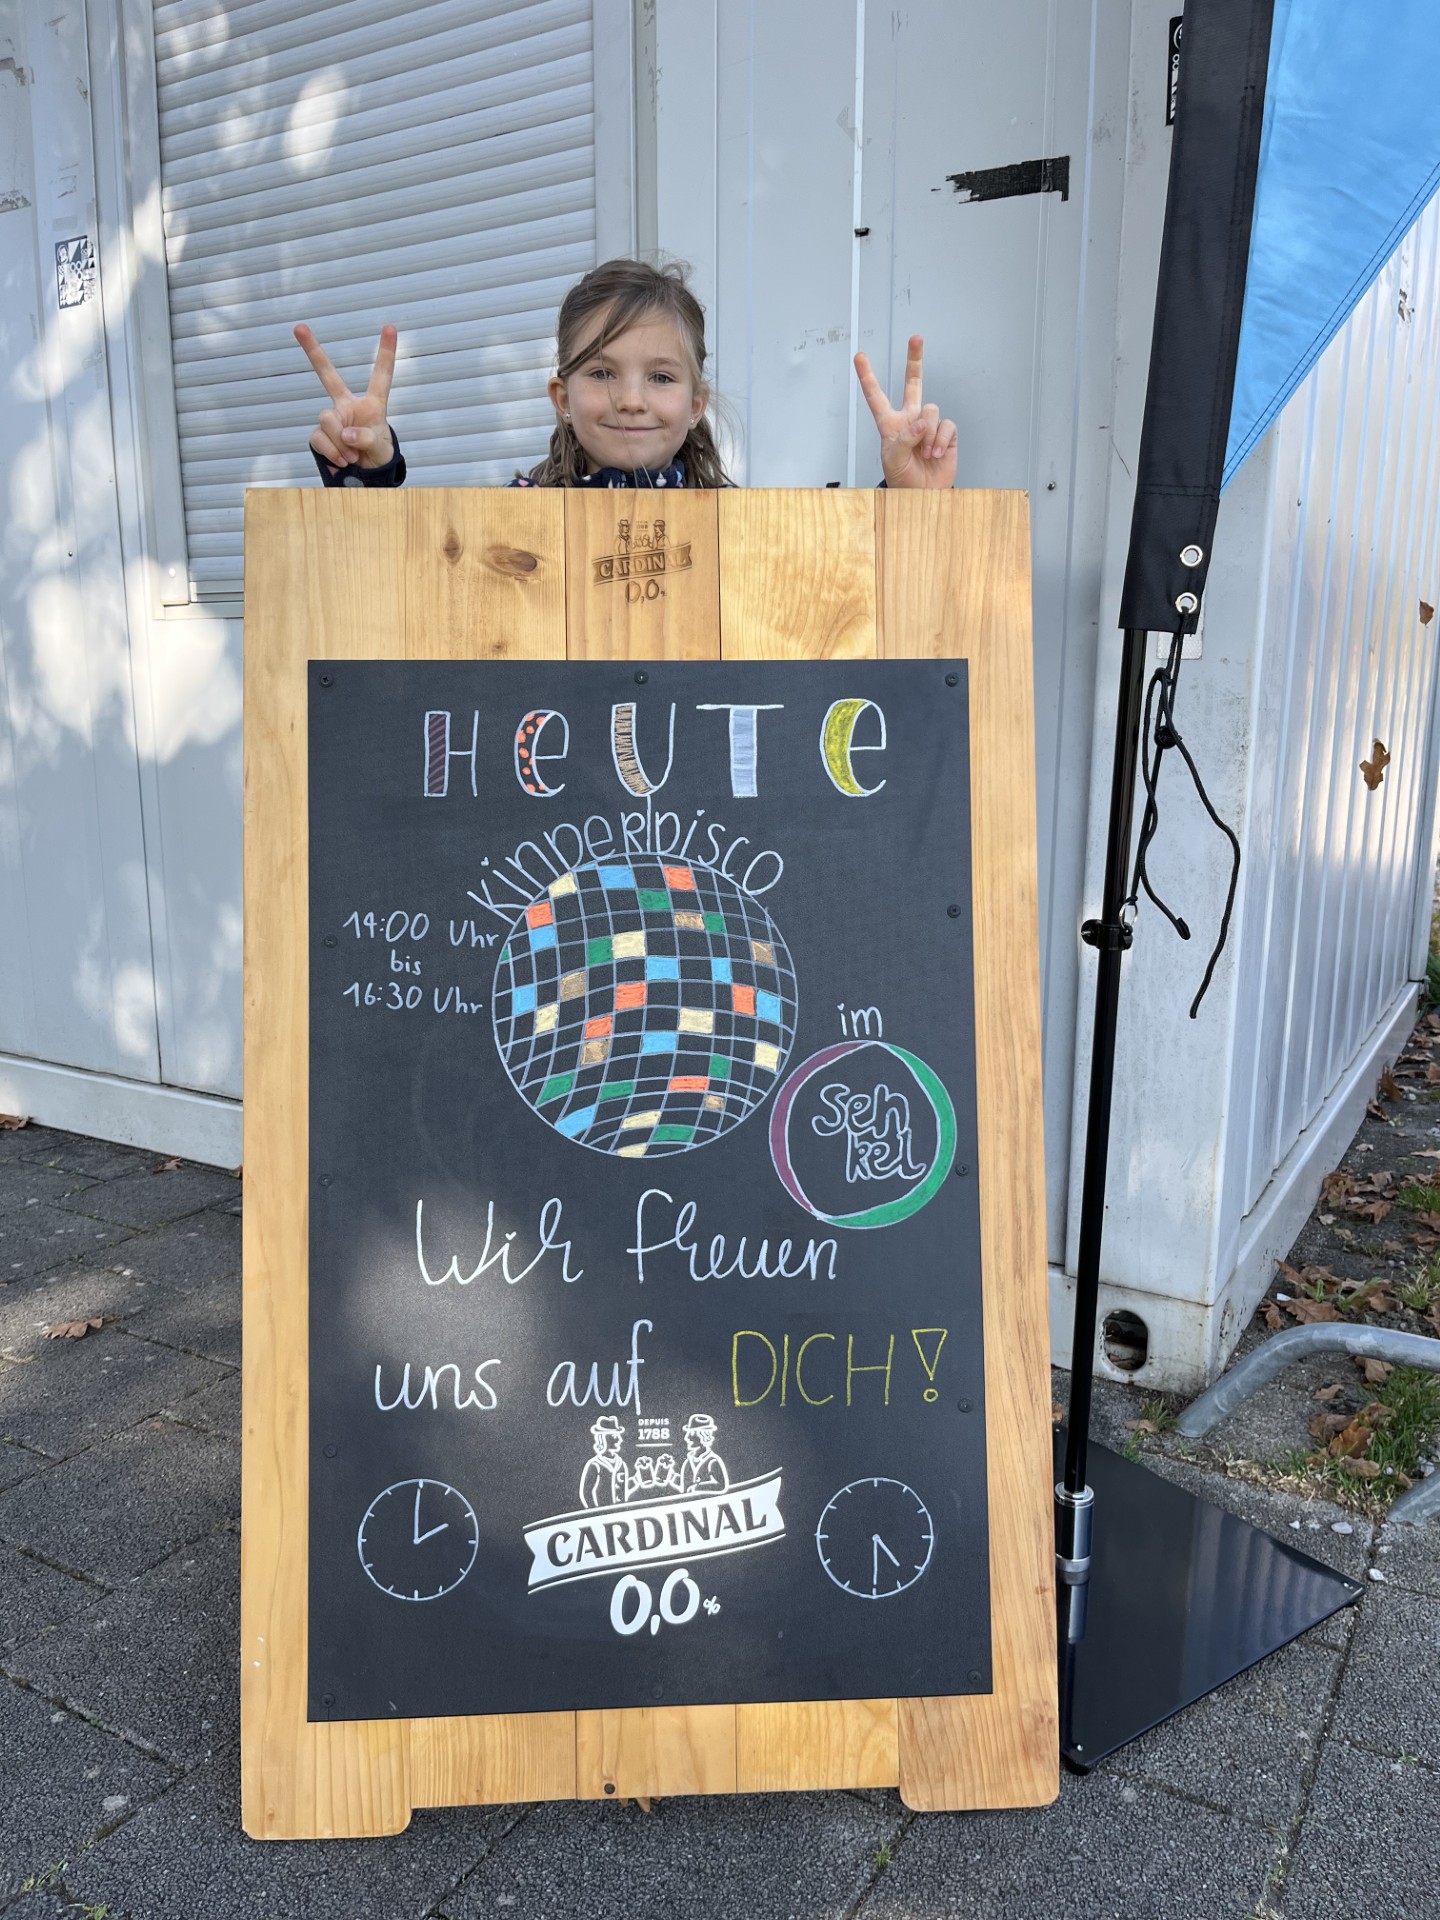 CARDINAL
0,0%
HEUTE
KINDERDISCO
14:00 Uhr
bis
16:30 Uhr
im
Sen
kel
Wir freuen
uns auf DICH!
DEPUIS
1788
CARDINAL
0,0%